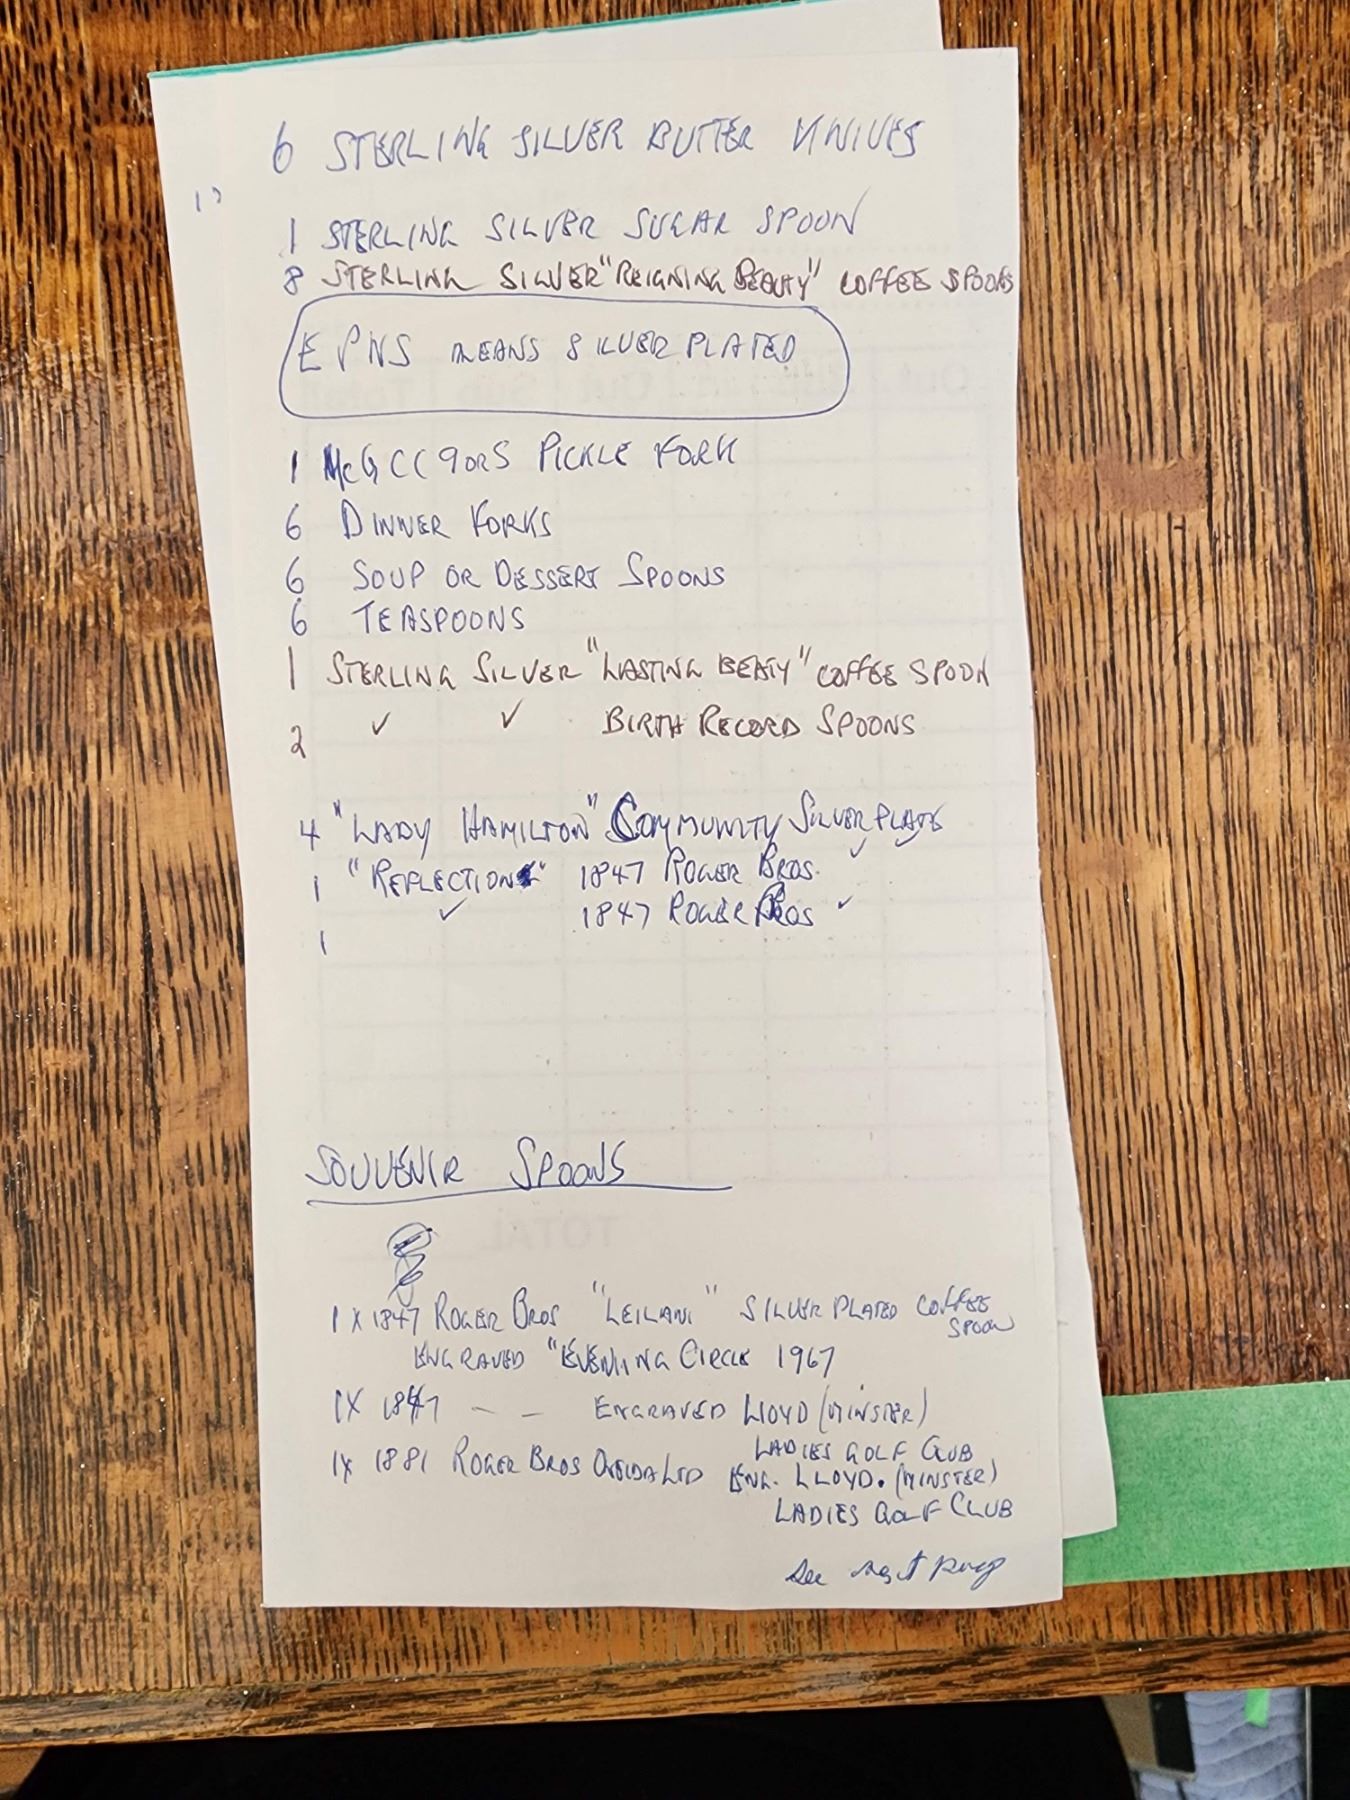 6 STERLING SILVER BUTTER KNIVES
1 STERLING SILVER SUGAR SPOON
8 STERLING SILVER "REIGNING BEAUTY" COFFEE SPOONS
EPNS MEANS SILVER PLATED
1 PICKLE FORK
6 DINNER FORKS
6 SOUP OR DESSERT SPOONS
6 TEASPOONS
1 STERLING SILVER "LASTING BEATY" COFFEE SPOON
2 ✓ ✓ BIRTH RECORD SPOONS
4 "LADY HAMILTON" COMMUNITY SILVER PLATE
1 "REFLECTION" 1847 ROGER BROS. ✓ ✓
1 ✓ 1847 ROGER BROS ✓
SOUVENIR SPOONS
1 X 1847 ROGER BROS "LEILANI" SILVER PLATED COFFEE
SPOON
ENGRAVED "EVENING CIRCLE 1967
1X 1847 - - ENGRAVED LLOYD (MINSTER)
LADIES GOLF CLUB
1X 1881 ROGER BROS ONEIDA LTD ENG. LLOYD. (MINSTER)
LADIES GOLF CLUB
See next page
OUT
Sub
Total
TOTAL